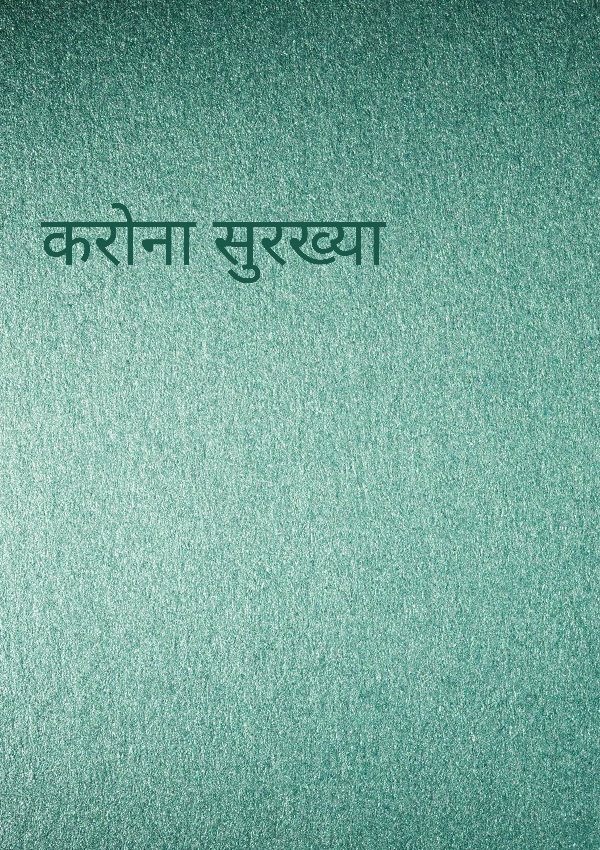 करोना सुरख्या